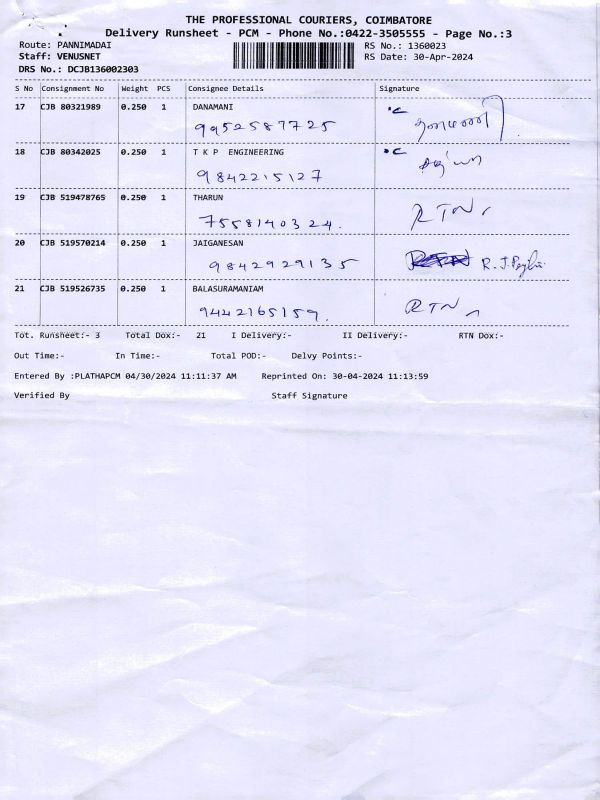 THE PROFESSIONAL COURIERS, COIMBATORE
Delivery Runsheet - PCM - Phone No.:0422-3505555 - Page No.:3
Route: PANNIMADAI RS No.: 1360023
Staff: VENUSNET RS Date: 30-Apr-2024
DRS No.: DCJB136002303
S No Consignment No Weight PCS Consignee Details Signature
17 CJB 80321989 0.250 1 DANAMANI
9952587725
18 CJB 80342025 0.250 1 T K P ENGINEERING
9842215127
19 CJB 519478765 0.250 1 THARUN RTN
7558140324.
20 CJB 519570214 0.250 1 JAIGANESAN
9842929135
21 CJB 519526735 0.250 1 BALASURAMANIAM RTN
9442165159.
Tot. Runsheet:- 3 Total Dox:- 21 I Delivery:- II Delivery:- RTN Dox:-
Out Time:- In Time:- Total POD:- Delvy Points:-
Entered By :PLATHAPCM 04/30/2024 11:11:37 AM Reprinted On: 30-04-2024 11:13:59
Verified By Staff Signature